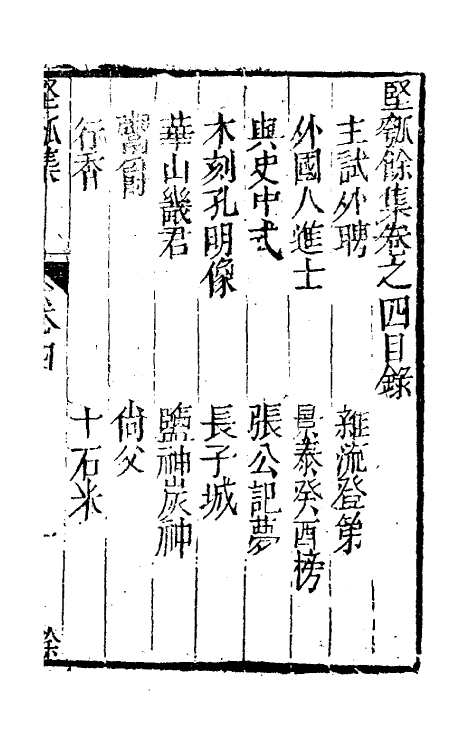 堅瓠餘集卷之四目錄
主試外聘 雜流登第
外國人進士 景泰癸酉榜
與史中式 張公記夢
木刻孔明像 長子城
華山畿君 鹽神炭神
鬻爵 尙父
行香 十石米
堅瓠集 卷四 一 餘